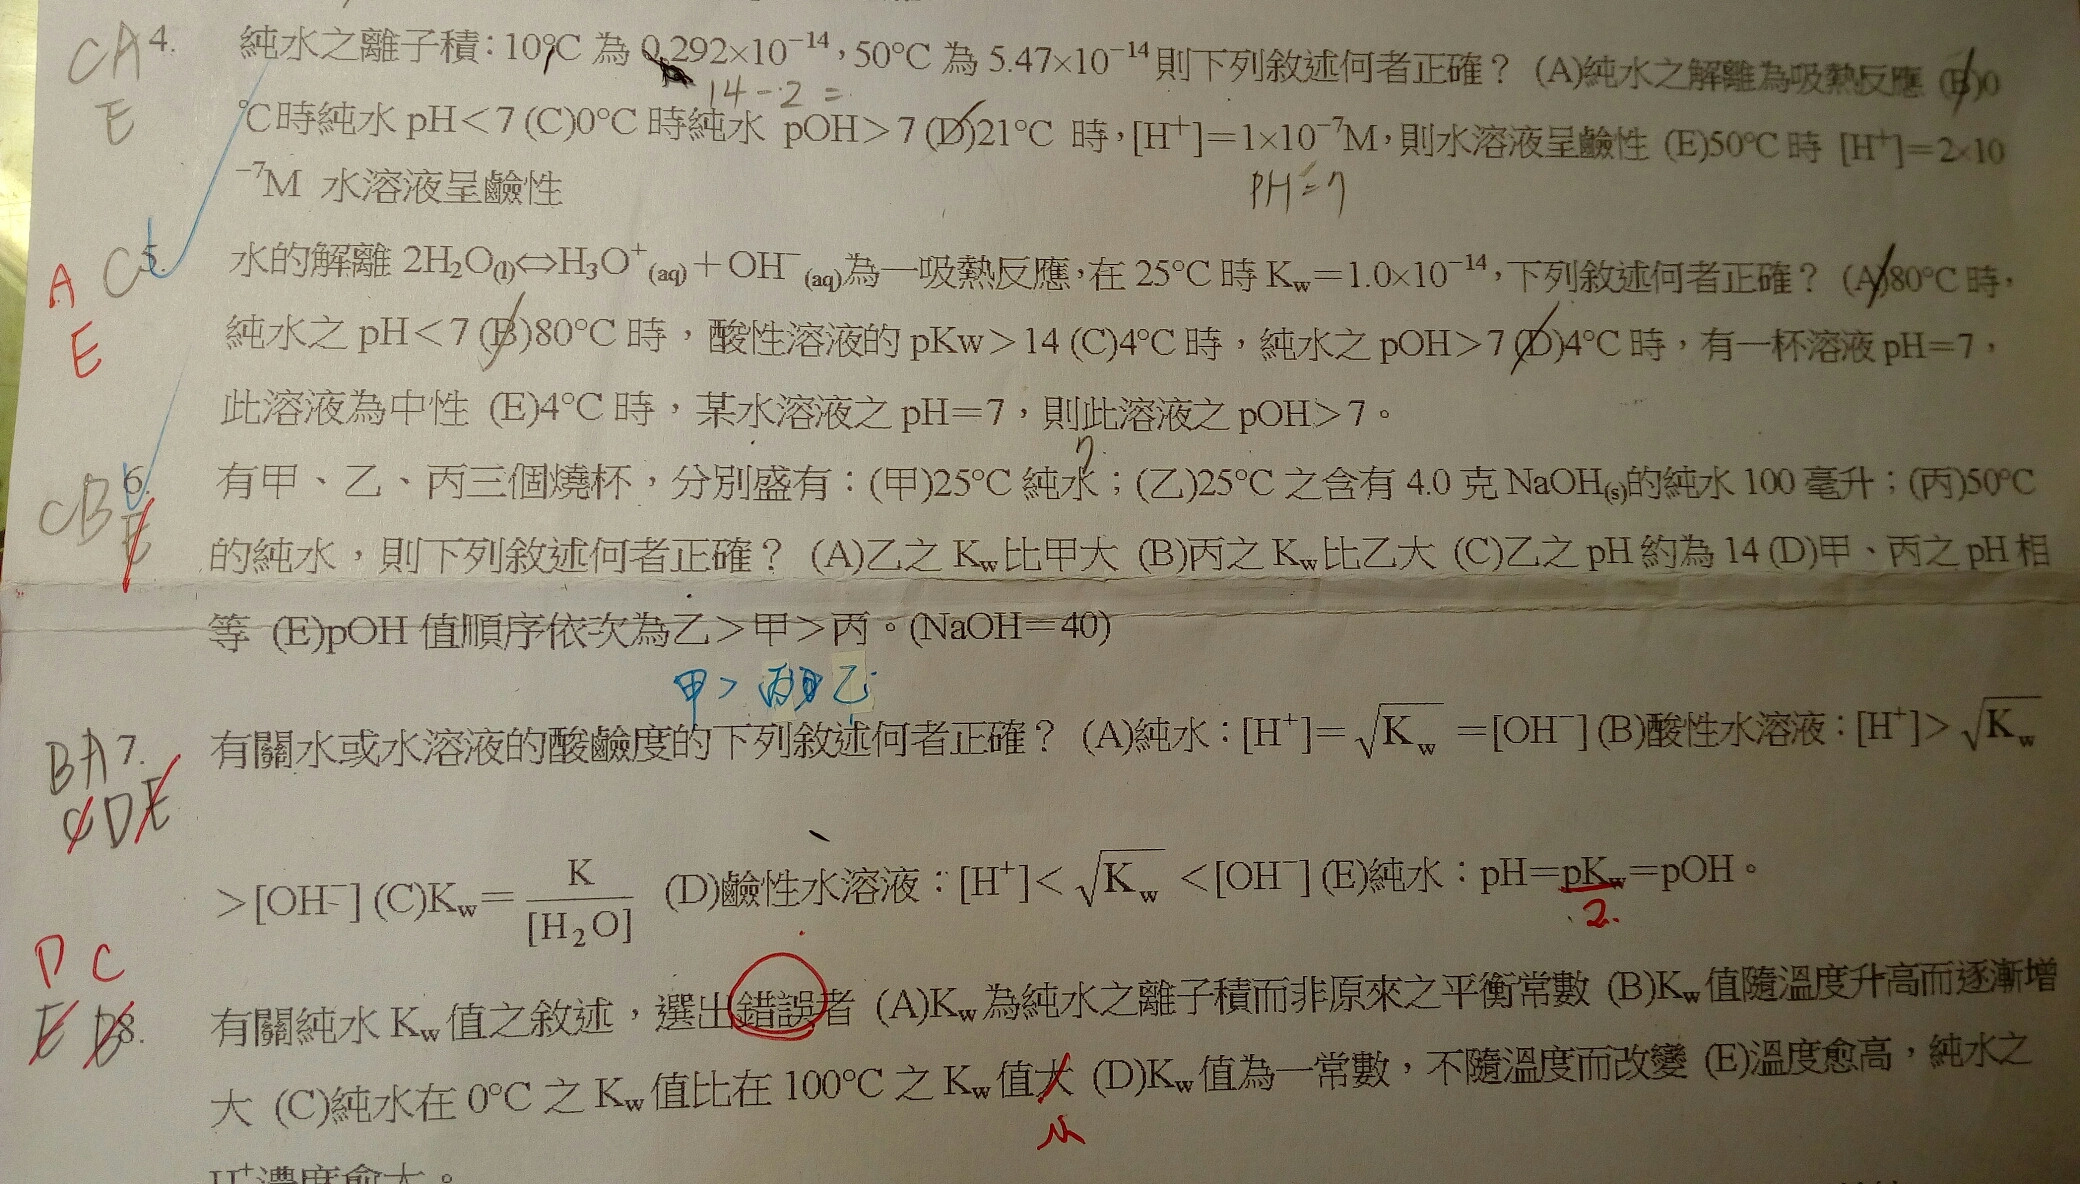 CA 4. 純水之離子積：10℃ 為 0.292×10⁻¹⁴，50℃ 為 5.47×10⁻¹⁴ 則下列敘述何者正確？ (A)純水之解離為吸熱反應 (B)0
E
14-2=
℃時純水 pH＜7 (C)0℃ 時純水 pOH＞7 (D)21℃ 時，[H⁺]＝1×10⁻⁷M，則水溶液呈鹼性 (E)50℃時 [H⁺]＝2×10
⁻⁷M 水溶液呈鹼性
PH=7
A C 5. 水的解離 2H₂O(l)⇔H₃O⁺(aq)＋OH⁻(aq)為一吸熱反應，在 25℃ 時 Kw＝1.0×10⁻¹⁴，下列敘述何者正確？ (A)80℃ 時，
E
純水之 pH＜7 (B)80℃ 時，酸性溶液的 pKw＞14 (C)4℃ 時，純水之 pOH＞7 (D)4℃ 時，有一杯溶液 pH＝7，
此溶液為中性 (E)4℃ 時，某水溶液之 pH＝7，則此溶液之 pOH＞7。
7
CB 6. 有甲、乙、丙三個燒杯，分別盛有：(甲)25℃ 純水；(乙)25℃ 之含有 4.0 克 NaOH(s)的純水 100 毫升；(丙)50℃
E
的純水，則下列敘述何者正確？ (A)乙之 Kw 比甲大 (B)丙之 Kw 比乙大 (C)乙之 pH 約為 14 (D)甲、丙之 pH 相
等 (E)pOH 值順序依次為乙＞甲＞丙。(NaOH＝40)
甲＞丙 乙
BA 7. 有關水或水溶液的酸鹼度的下列敘述何者正確？ (A)純水：[H⁺]＝√Kw＝[OH⁻] (B)酸性水溶液：[H⁺]＞√Kw
CDE
＞[OH⁻] (C)Kw＝K/[H₂O] (D)鹼性水溶液：[H⁺]＜√Kw＜[OH⁻] (E)純水：pH＝pKw＝pOH。
2.
D C
E B 8. 有關純水 Kw 值之敘述，選出錯誤者 (A)Kw 為純水之離子積而非原來之平衡常數 (B)Kw 值隨溫度升高而逐漸增
大 (C)純水在 0℃ 之 Kw 值比在 100℃ 之 Kw 值大 (D)Kw 值為一常數，不隨溫度而改變 (E)溫度愈高，純水之
小
H⁺濃度愈大。